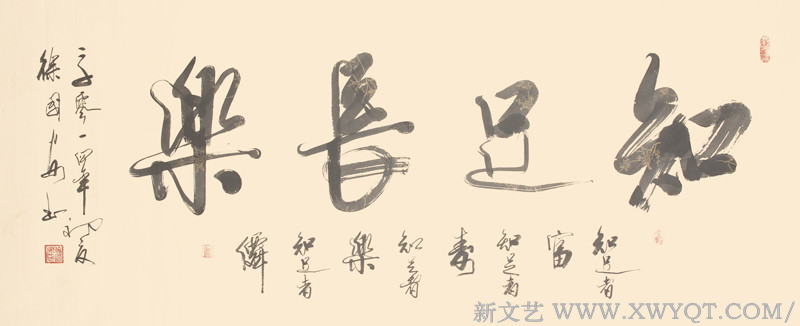 知足長樂
知足者富
知足者壽
知足者樂
知足者僊
零一四年初夏
徐國
新文艺 WWW.XWYQT.COM/